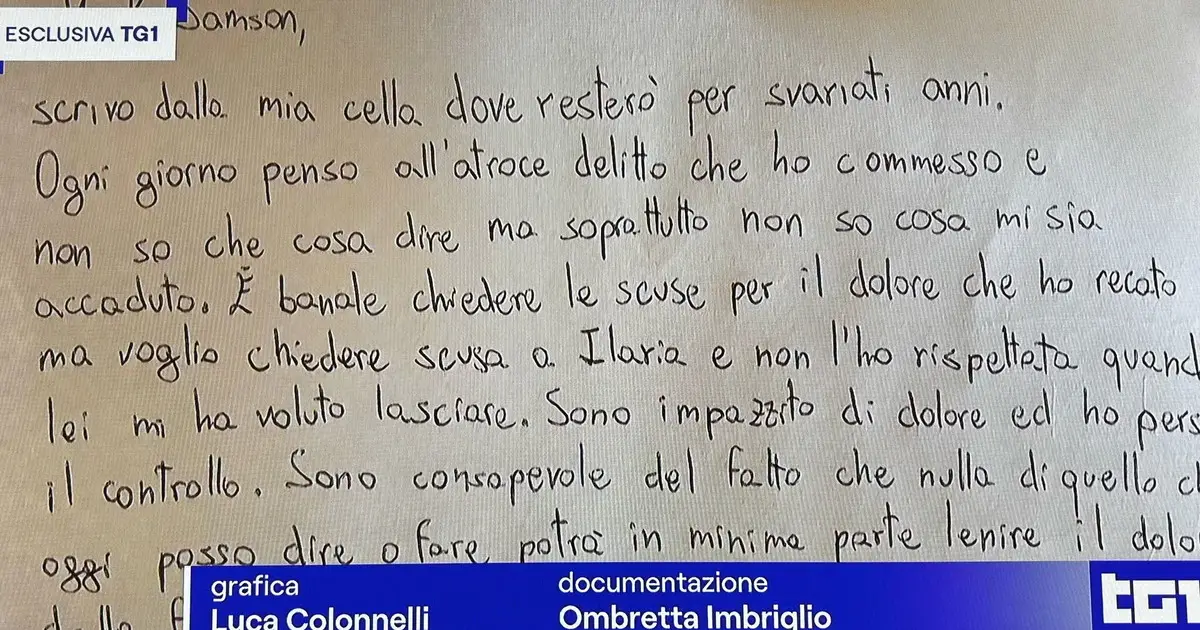 ESCLUSIVA TG1
Samson,
scrivo dalla mia cella dove resterò per svariati anni.
Ogni giorno penso all'atroce delitto che ho commesso e
non so che cosa dire ma soprattutto non so cosa mi sia
accaduto. È banale chiedere le scuse per il dolore che ho recato
ma voglio chiedere scusa a Ilaria e non l'ho rispettata quand
lei mi ha voluto lasciare. Sono impazzito di dolore ed ho pers
il controllo. Sono consapevole del fatto che nulla di quello c
oggi posso dire o fare potrà in minima parte lenire il dolo
grafica
Luca Colonnelli
documentazione
Ombretta Imbriglio
tg1